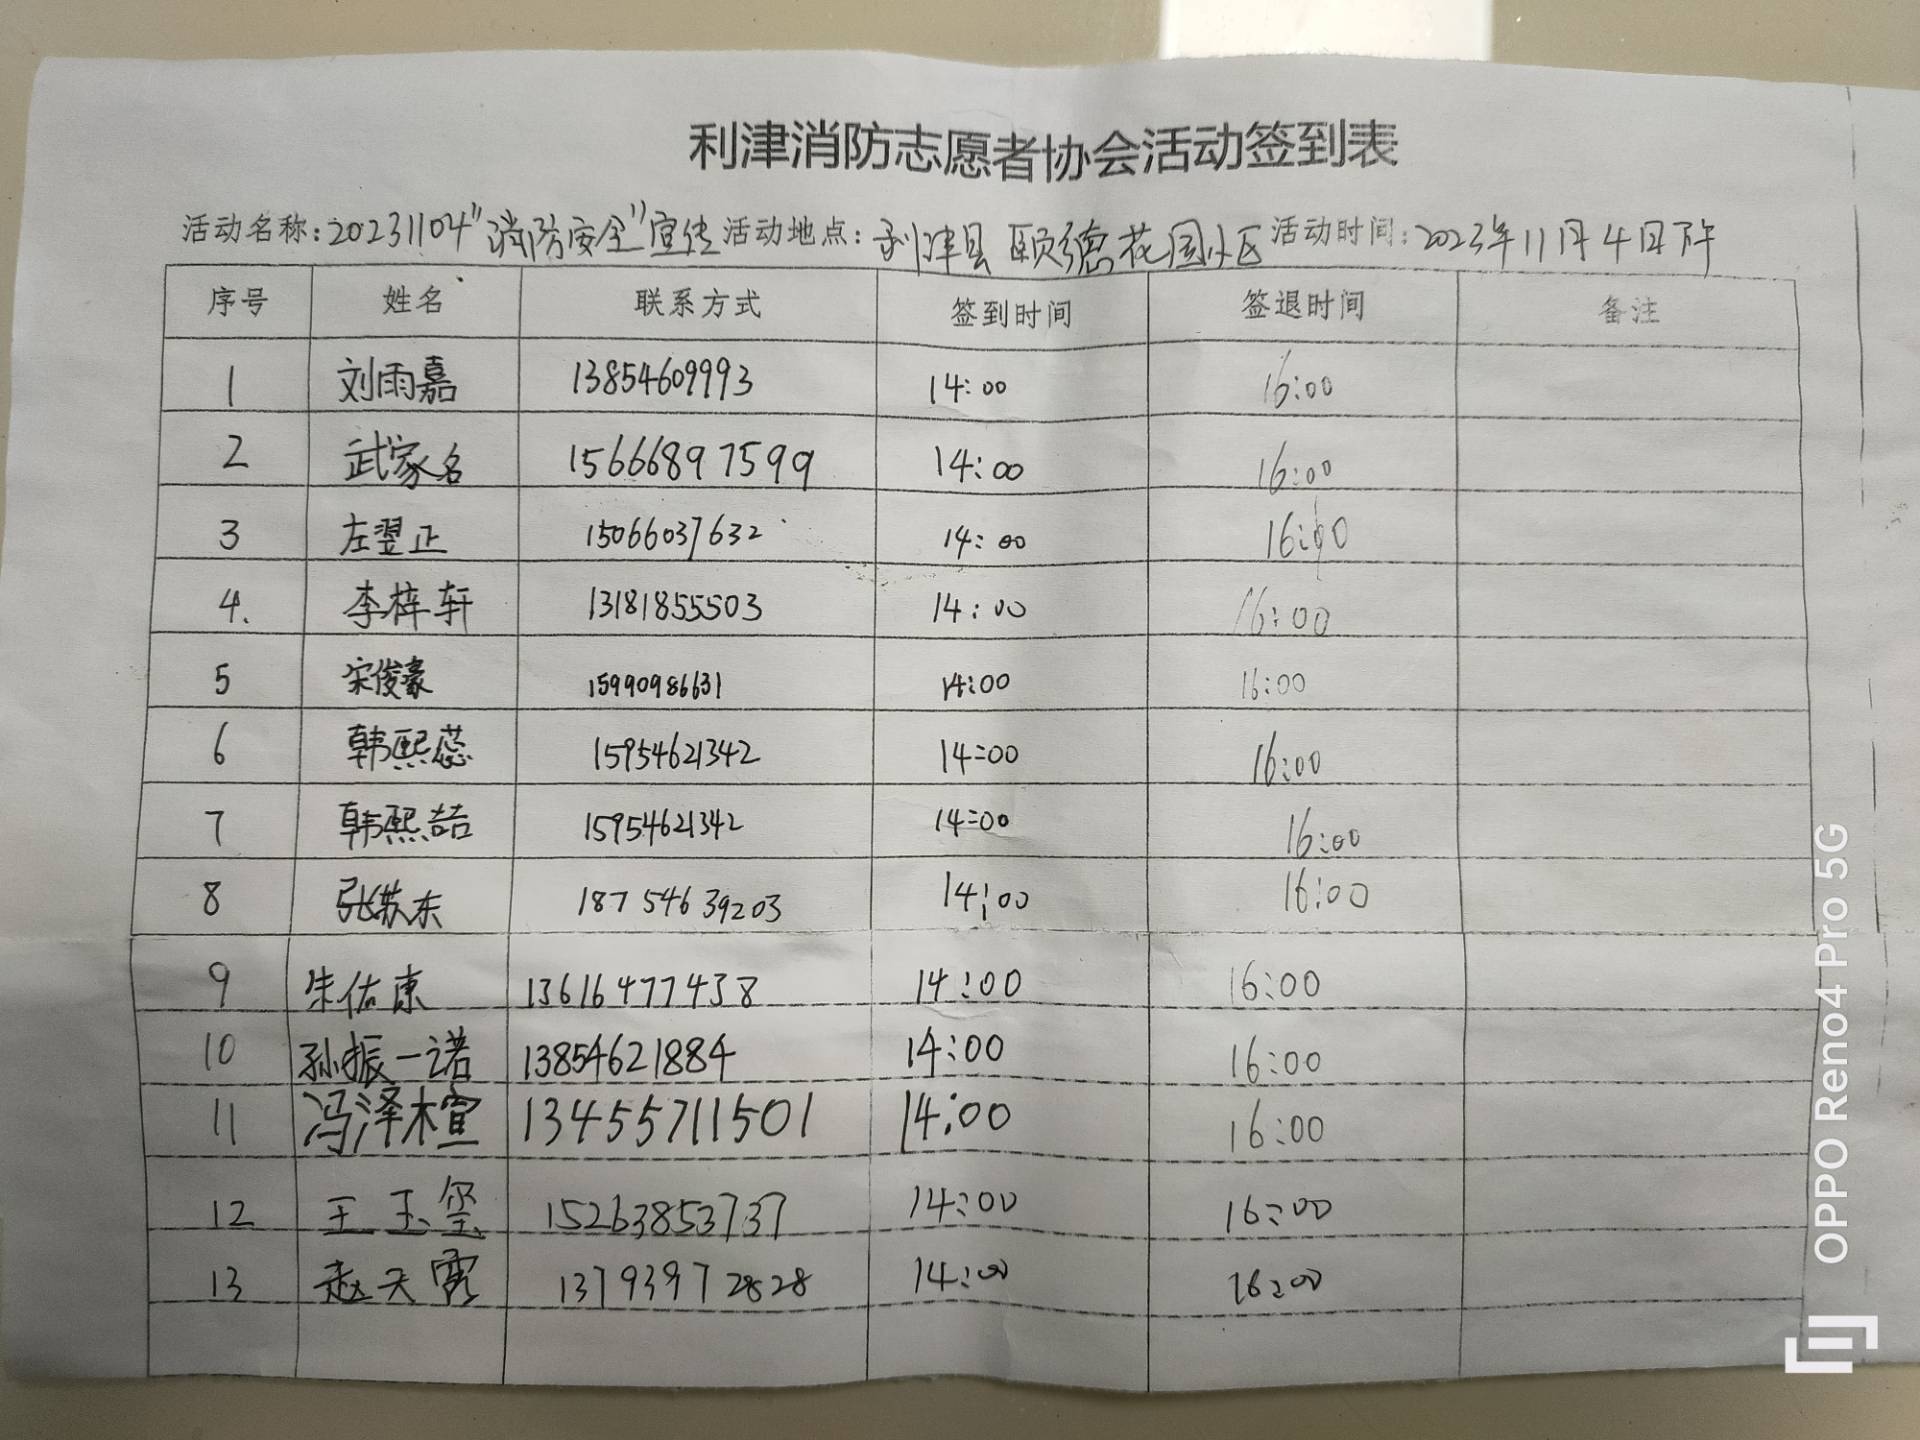 利津消防志愿者协会活动签到表
活动名称:20231104"消防安全"宣传 活动地点:利津县颐德花园小区 活动时间:2023年11月4日下午
序号 姓名 联系方式 签到时间 签退时间 备注
1 刘雨嘉 13854609993 14:00 16:00
2 武家名 15666897599 14:00 16:00
3 左翌正 15066037632 14:00 16:00
4. 李梓轩 13181855503 14:00 16:00
5 宋俊豪 15990986631 14:00 16:00
6 韩熙蕊 15954621342 14:00 16:00
7 韩熙喆 15954621342 14:00 16:00
8 张苏东 18754639203 14:00 16:00
9 朱佑康 13616477438 14:00 16:00
10 孙振一诺 13854621884 14:00 16:00
11 冯泽楦 13455711501 14:00 16:00
12 王玉玺 15263853737 14:00 16:00
13 赵天霞 13793972828 14:00 16:00
OPPO Reno4 Pro 5G